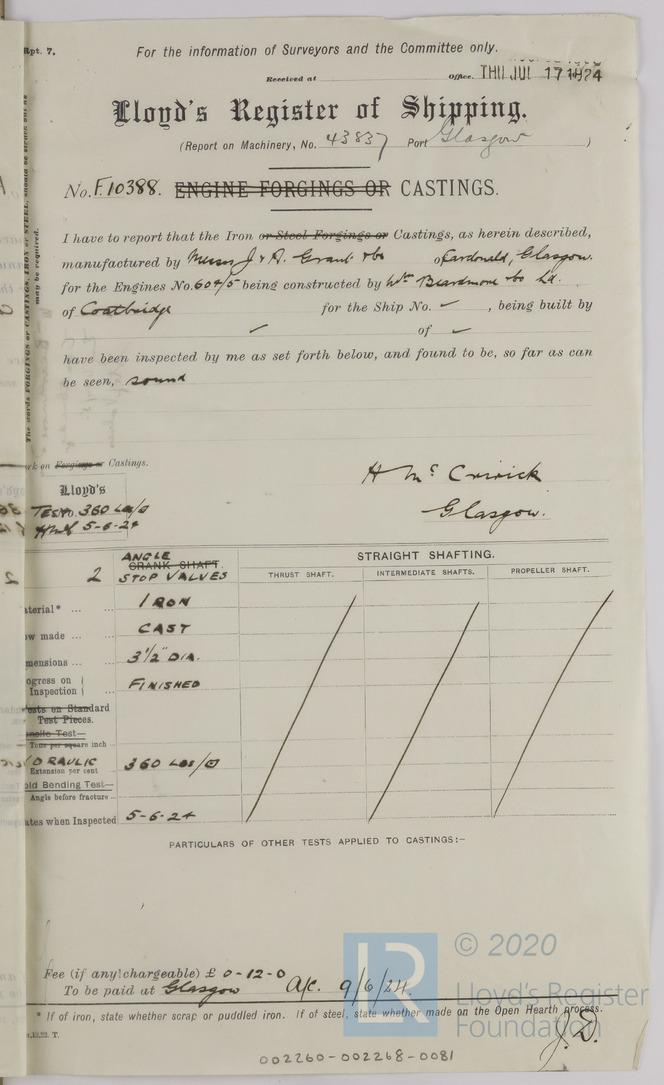 Rpt. 7.
For the information of Surveyors and the Committee only.
Received at Office. THU JUL 17 1924
Lloyd's Register of Shipping.
(Report on Machinery, No. 43837 Port Glasgow)
No. F.10388. ENGINE FORGINGS OR CASTINGS.
I have to report that the Iron or Steel Forgings or Castings, as herein described,
manufactured by Messrs J & A. Grant & Co of Cardonald, Glasgow.
for the Engines No. 604/5 being constructed by Wm Beardmore & Co Ld.
of Coatbridge for the Ship No. ✓ , being built by
✓ of ✓
have been inspected by me as set forth below, and found to be, so far as can
be seen, sound
The words FORGINGS or CASTINGS, IRON or STEEL, should be struck out as
may be required.
rk on Forgings or Castings.
Lloyd's
TEST No. 360 Lbs/□
5-6-24
H Mc
Glasgow.
2 ANGLE
CRANK SHAFT.
STOP VALVES
STRAIGHT SHAFTING.
THRUST SHAFT. INTERMEDIATE SHAFTS. PROPELLER SHAFT.
terial* ... ... IRON
ow made ... ... CAST
mensions ... ... 3½" DIA.
ogress on
Inspection FINISHED
ests on Standard
Test Pieces.
ensile Test—
Tons per square inch
DRAULIC 360 LBS/□
Extension per cent
old Bending Test—
Angle before fracture
ates when Inspected 5-6-24
PARTICULARS OF OTHER TESTS APPLIED TO CASTINGS:–
Fee (if any chargeable) £ 0-12-0
To be paid at Glasgow A/c. 9/6/24.
* If of iron, state whether scrap or puddled iron. If of steel, state whether made on the Open Hearth process.
J.D.
T.
002260-002268-0081
LR © 2020
Lloyd's Register
Foundation